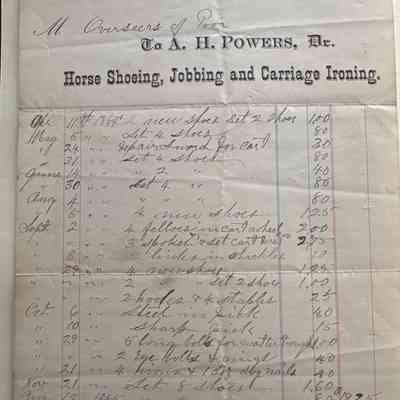 M Overseers of Poor
To A. H. POWERS, Dr.
Horse Shoeing, Jobbing and Carriage Ironing.
11th 1885 2 new shoes Set 2 shoes 1.00
May 6 " " Set 4 shoes 80
" 24 " " Repair Sword for cart 30
" 31 " " Set 4 shoes 80
June 14 " " " 2 " 40
" 30 " " Set 4 " 80
Aug 4 " " " " " 80
" 6 " " 4 new shoes 1.25
Sept 2 " " 4 felloes in cart wheel 2.00
" " " 3 spokes & set cart 2.25
" 8 " " 2 links in shackles 10
" 29 " " 4 new shoes 1.25
" " " 2 " " Set 2 shoes 1.00
2 hooks & 4 staples 25
Oct 6 " Steel in pick 40
" 10 " Sharp pick 15
" 29 " 6 long bolts for water
" " 2 Eye bolts & rings 40
" 21 " 4 40
Nov 21 " Set 8 shoes 1.60
12 80